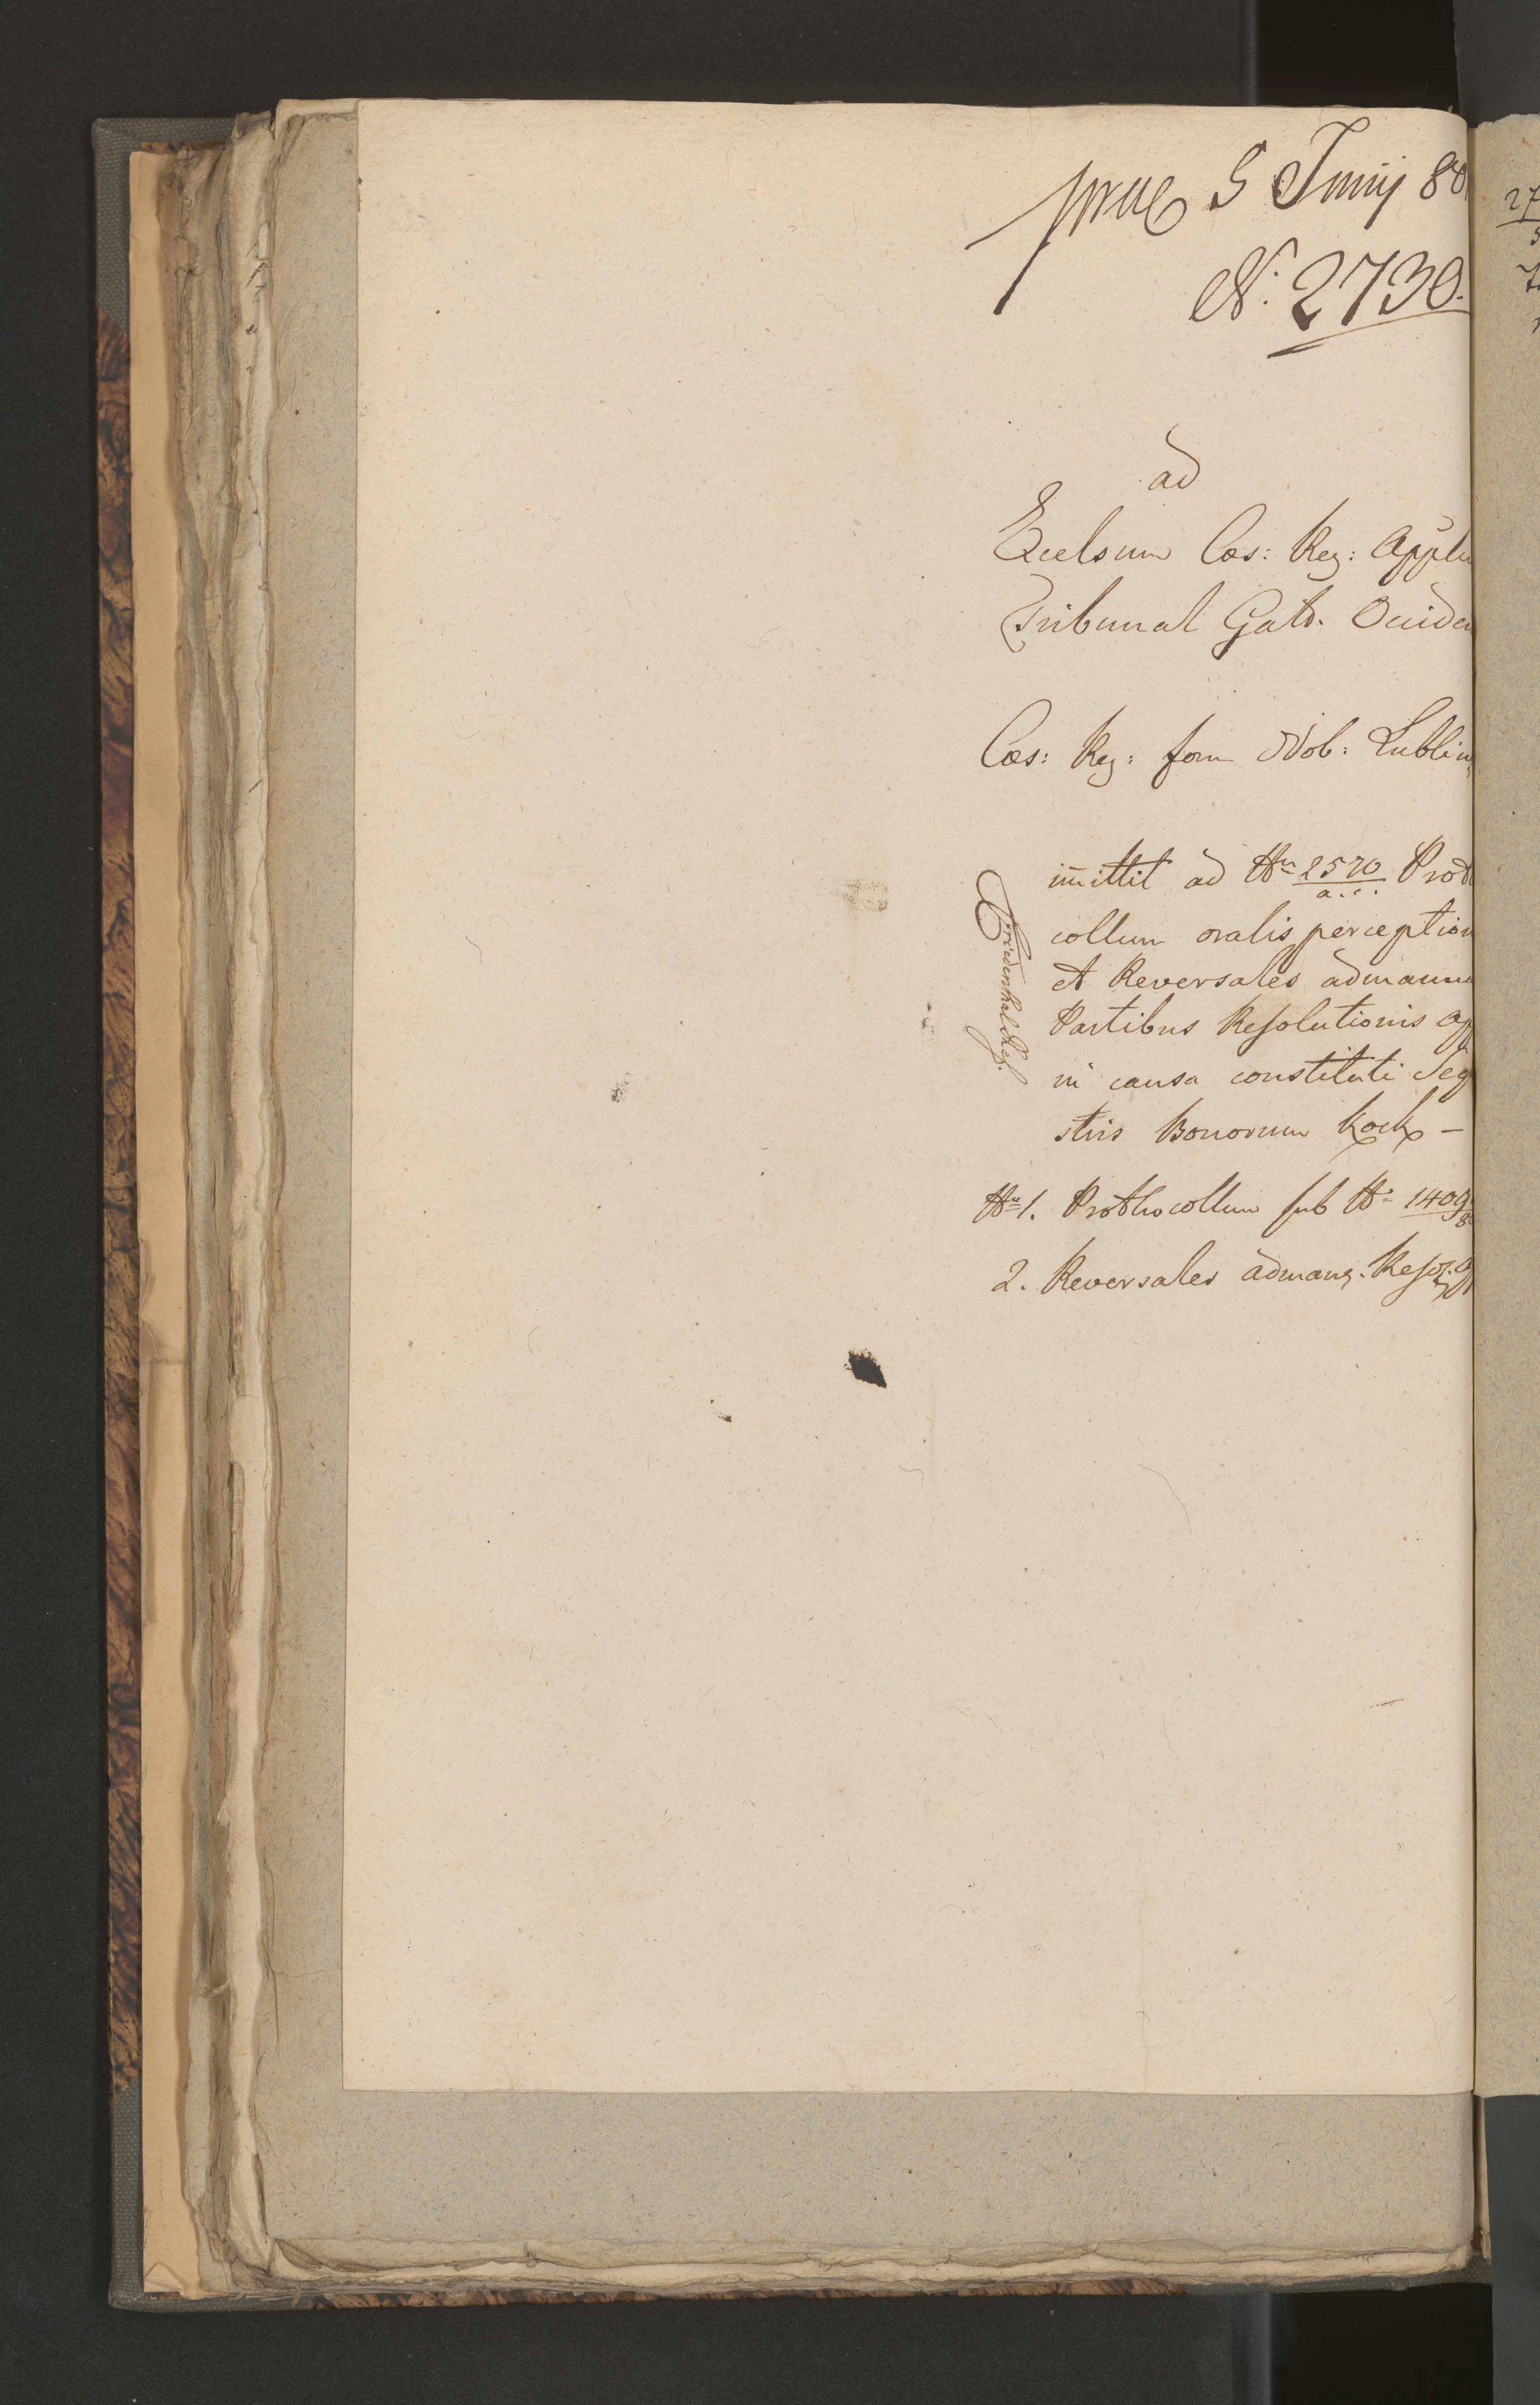 prae 5 Junij 80
N: 2730.
ad
Excelsum Cæs: Reg: Appel
Tribunal Galic. Occiden
Cæs: Reg: forum Nob: Lublin
im̄ittit ad Nrum 2570 Proth
a. c.
collum oralis perception
et Reversales admanua
Partibus Resolutionis Ap
in causa constituti Seq
stris Bonorum Kock –
Nr 1. Prothocollum sub Nr 1409
2. Reversales admang. Resol. Ap
27